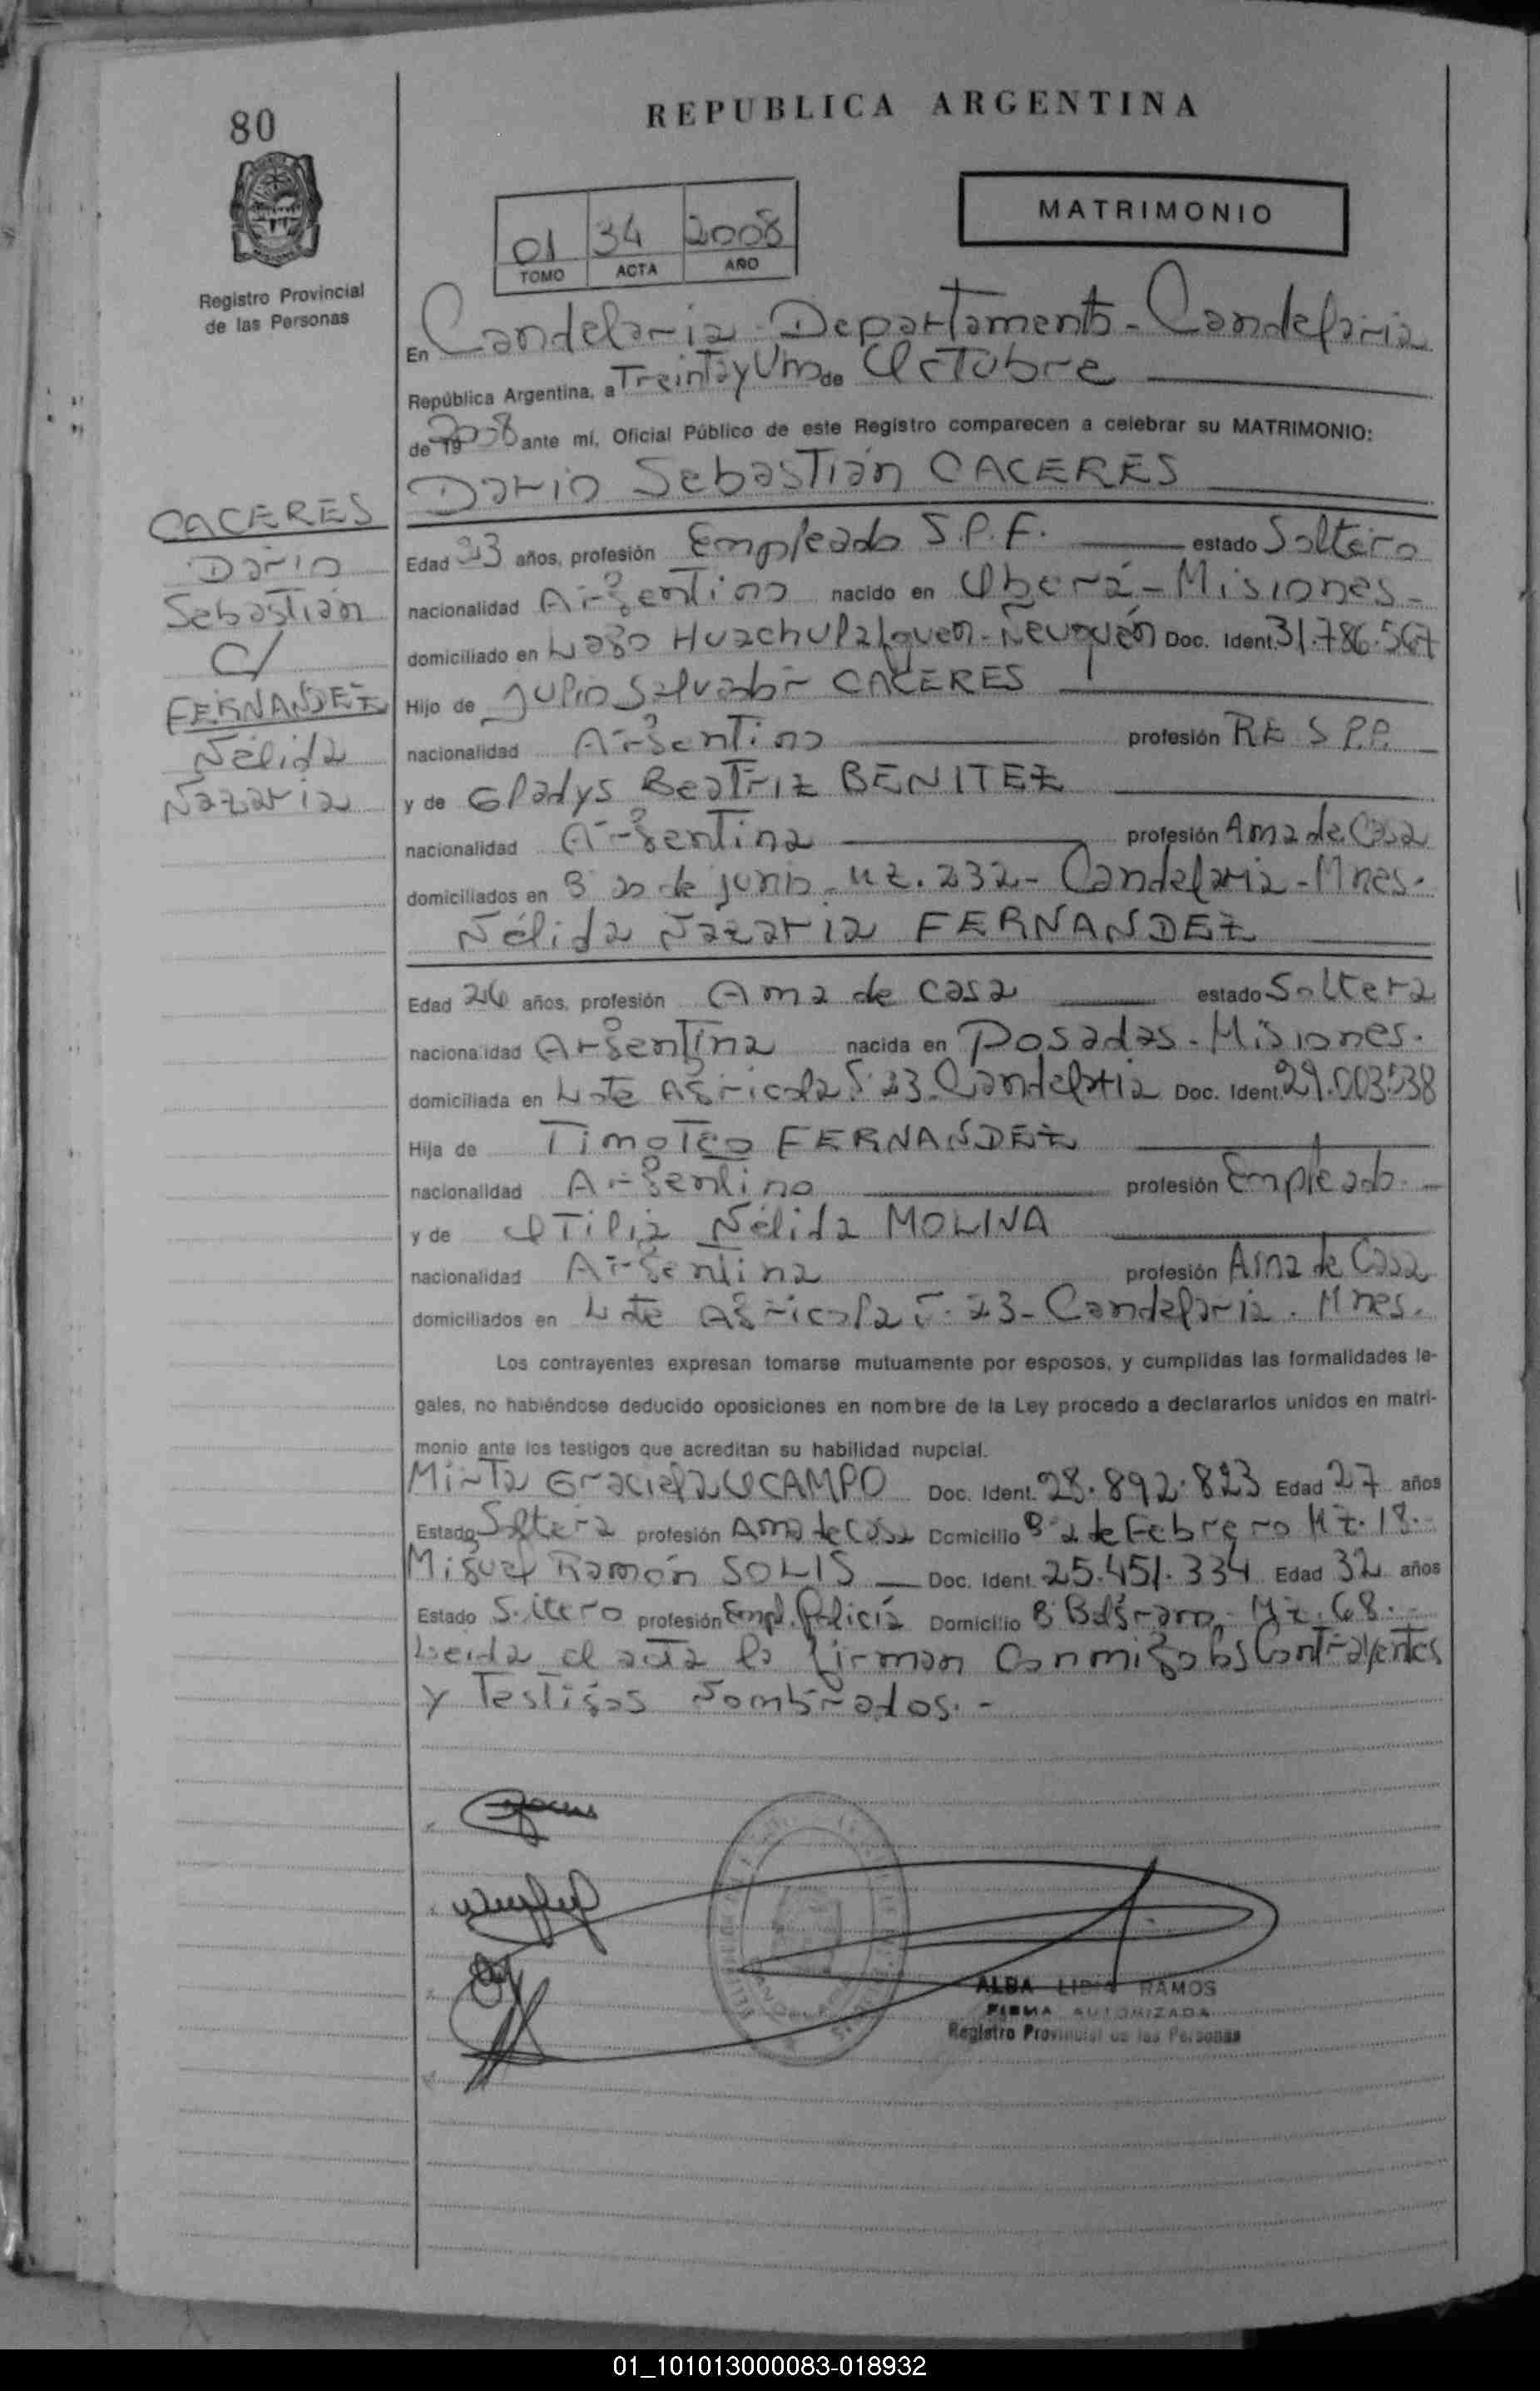 80
REPUBLICA ARGENTINA
MATRIMONIO
01 34 2008
TOMO ACTA AÑO
Registro Provincial
de las Personas
En Candelaria - Departamento - Candelaria
República Argentina, a Treinta y Uno de Octubre
de 2008 ante mí, Oficial Público de este Registro comparecen a celebrar su MATRIMONIO:
Dario Sebastián CACERES
CACERES
Dario
Sebastián
C/
FERNANDEZ
Nélida
Nazaria
Edad 23 años, profesión Empleado S.P.F. estado Soltero
nacionalidad Argentino nacido en Oberá - Misiones -
domiciliado en Lago Huachulafquen - Neuquén Doc. Ident. 31.786.567
Hijo de Julio Salvador CACERES
nacionalidad Argentino profesión RE S P.P.
y de Gladys Beatriz BENITEZ
nacionalidad Argentina profesión Ama de Casa
domiciliados en B° 20 de junio - Mz. 232 - Candelaria - Mnes.
Nélida Nazaria FERNANDEZ
Edad 26 años, profesión Ama de casa estado Soltera
nacionalidad Argentina nacida en Posadas - Misiones.
domiciliada en Lote Agricola 23 - Candelaria Doc. Ident. 29.003.538
Hija de Timoteo FERNANDEZ
nacionalidad Argentino profesión Empleado -
y de Otilia Nélida MOLINA
nacionalidad Argentina profesión Ama de Casa
domiciliados en Lote Agricola 23 - Candelaria - Mnes.
Los contrayentes expresan tomarse mutuamente por esposos, y cumplidas las formalidades le-
gales, no habiéndose deducido oposiciones en nombre de la Ley procedo a declararlos unidos en matri-
monio ante los testigos que acreditan su habilidad nupcial.
Mirta Graciela OCAMPO Doc. Ident. 28.892.823 Edad 27 años
Estado Soltera profesión Ama de Casa Domicilio B° 2 de Febrero Mz. 18.-
Miguel Ramón SOLIS Doc. Ident. 25.451.334 Edad 32 años
Estado Soltero profesión Empl. Policía Domicilio B° Belgrano - Mz. 68.-
Leida el acta la firman Conmigo los Contrayentes
y Testigos Nombrados.-
ALBA LIDIA RAMOS
FIRMA AUTORIZADA
Registro Provincial de las Personas
01_101013000083-018932